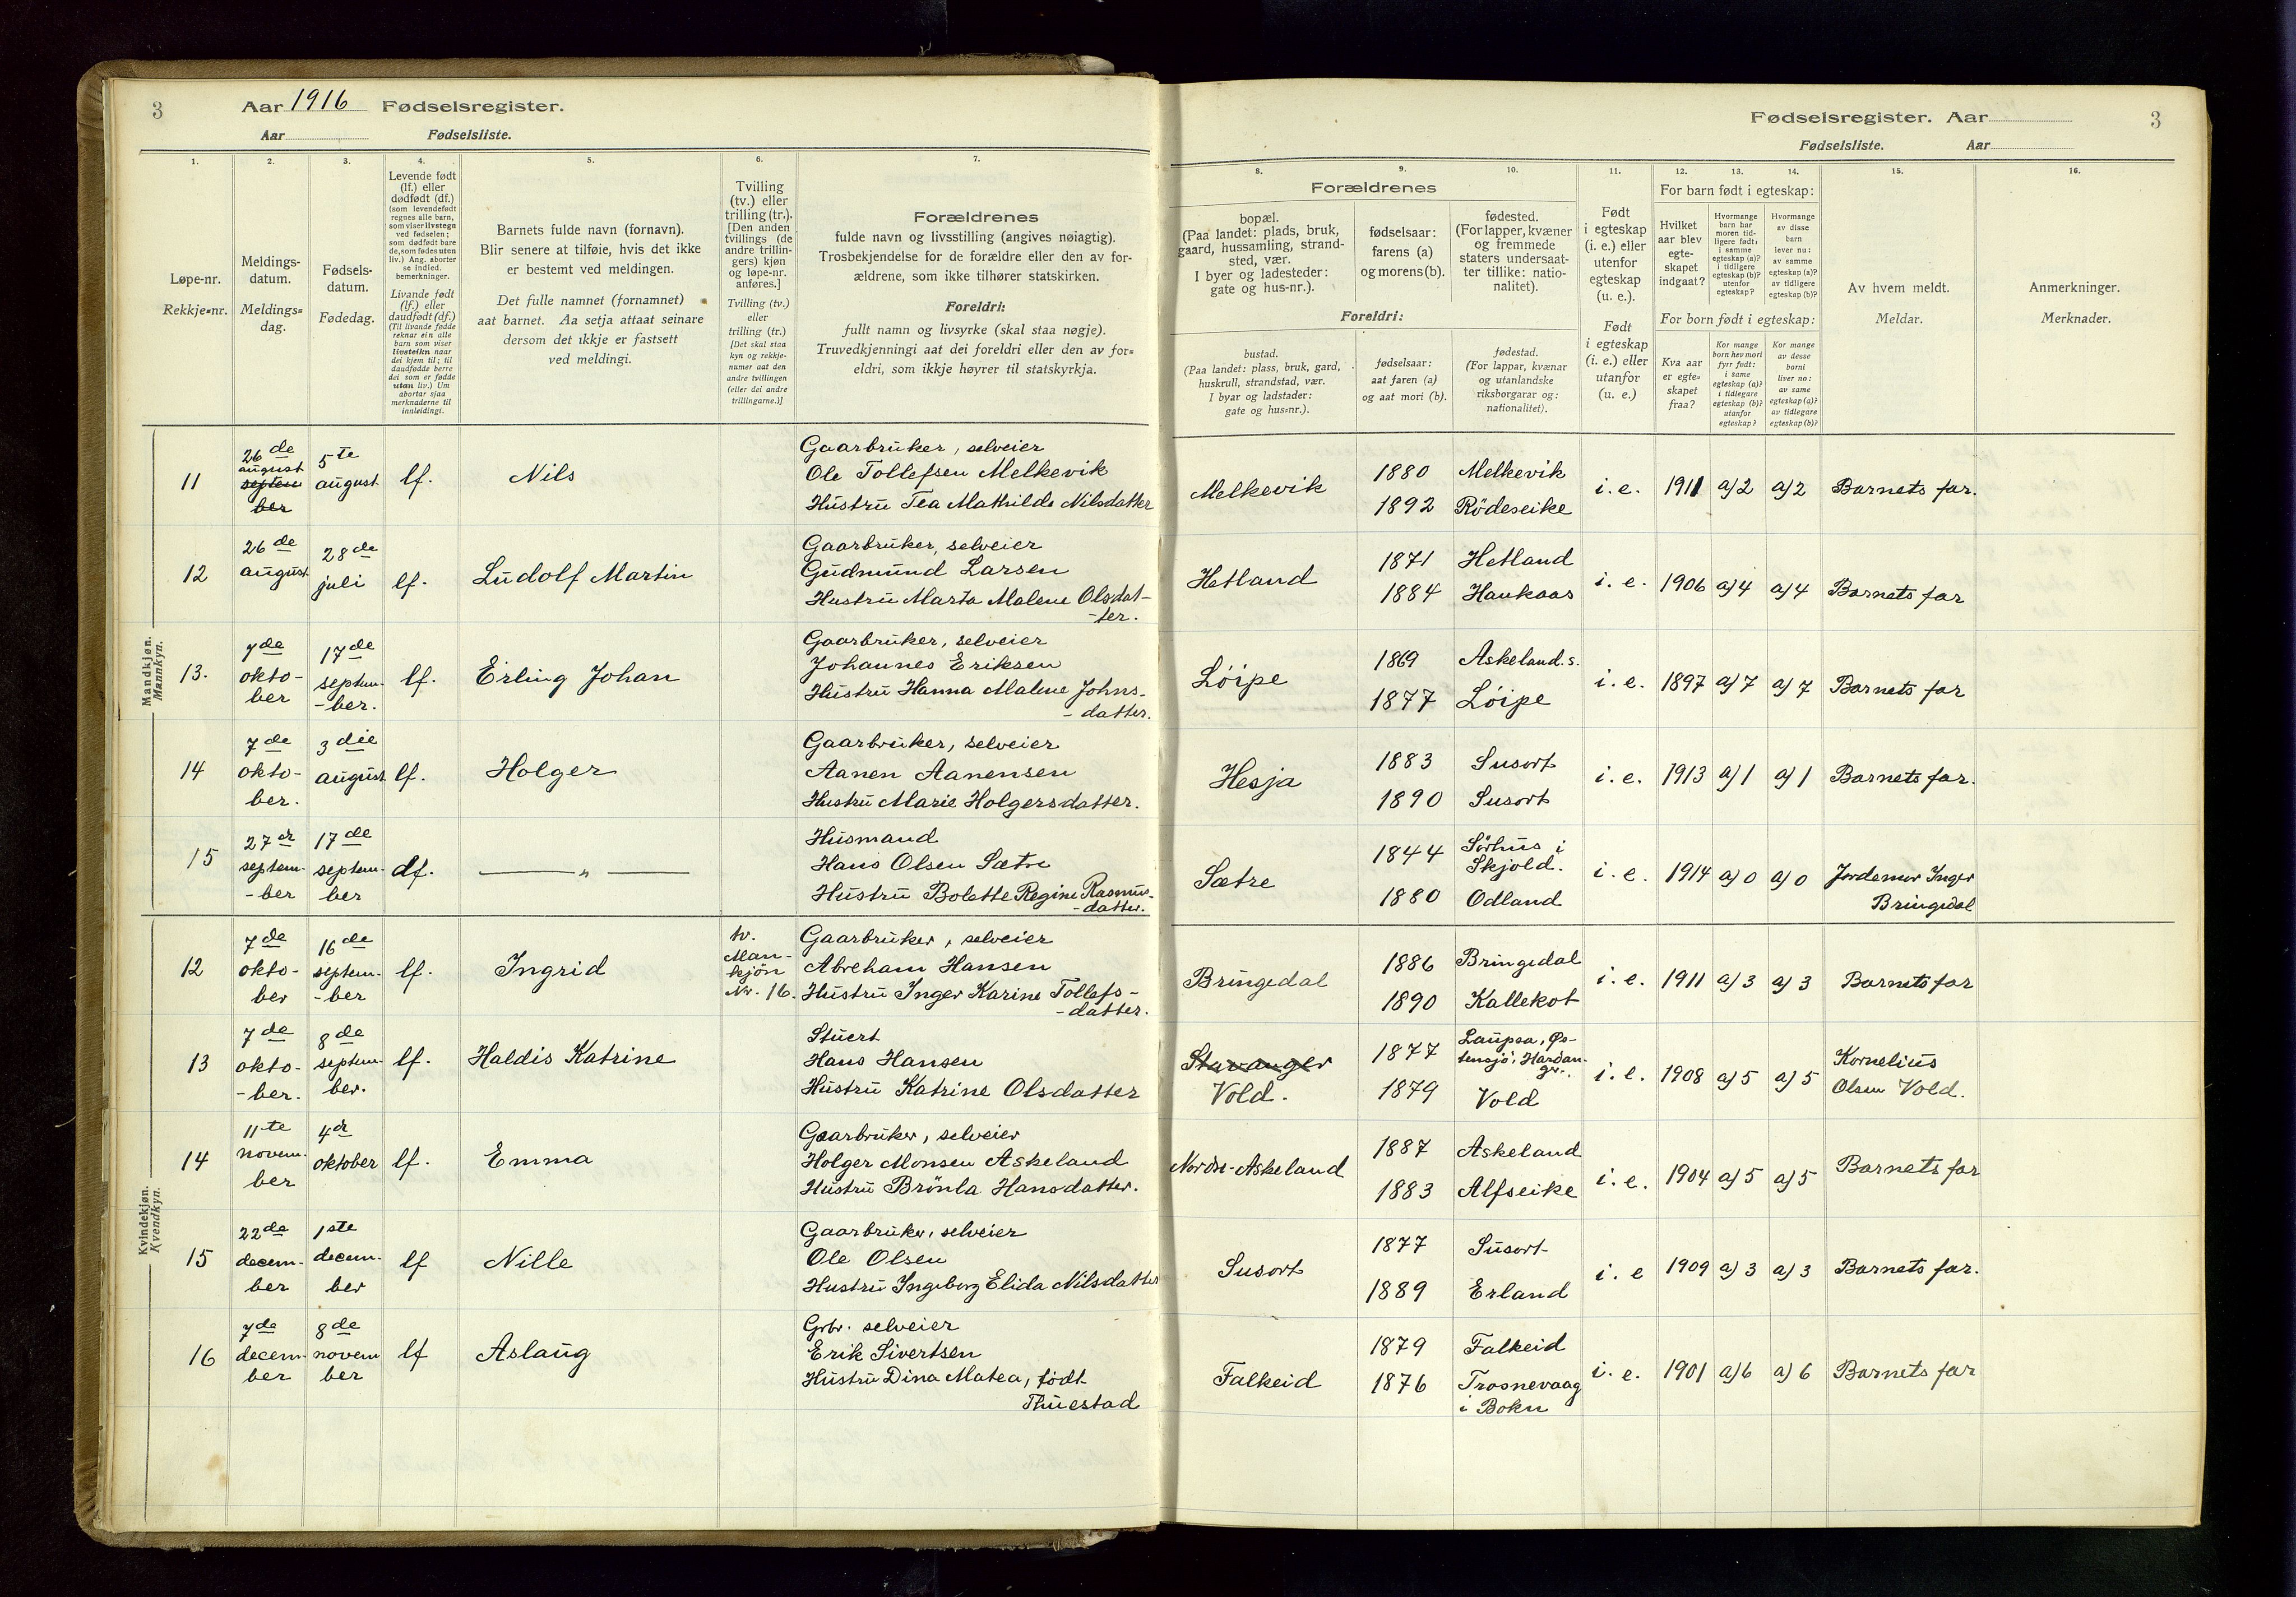 3 Aar 1916 Fødselsregister.
Aar Fødselsliste.
Fødselsregister. Aar 3
Fødselsliste. Aar
1. 2. 3. 4. 5. 6. 7. 8. 9. 10. 11. 12. 13. 14. 15. 16.
Løpe-nr.
Rekkje=nr.
Meldings-
datum.
Meldings=
dag.
Fødsels-
datum.
Fødedag.
Levende født
(lf.) eller
dødfødt (df.)
(som levendefødt
regnes alle barn,
som viser livstegn
ved fødselen;
som dødfødt bare
de, som fødes uten
liv.) Ang. aborter
se indled.
bemerkninger.
Livande født
(lf.) eller
daudfødt (df.)
(Til livande fødde
reknar ein alle
barn som viser
livsteikn naar
dei kjem til; til
daudfødde berre
dei som er fødde
utan liv.) Um
abortar sjaa
merknaderne til
innleidingi.
Barnets fulde navn (fornavn).
Blir senere at tilføie, hvis det ikke
er bestemt ved meldingen.
Det fulle namnet (fornamnet)
aat barnet. Aa setja attaat seinare
dersom det ikkje er fastsett
ved meldingi.
Tvilling
(tv.) eller
trilling (tr.).
[Den anden
tvillings (de
andre trillin-
gers) kjøn
og løpe-nr.
anføres.]
Tvilling (tv.)
eller
trilling (tr.)
[Det skal staa
kyn og rekkje-
numer aat den
andre tvillingen
(eller dei andre
trillingarne.)]
Forældrenes
fulde navn og livsstilling (angives nøiagtig).
Trosbekjendelse for de forældre eller den av for-
ældrene, som ikke tilhører statskirken.
Foreldri:
fullt namn og livsyrke (skal staa nøgje).
Truvedkjenningi aat dei foreldri eller den av for=
eldri, som ikkje høyrer til statskyrkja.
Forældrenes
bopæl.
(Paa landet: plads, bruk,
gaard, hussamling, strand-
sted, vær.
I byer og ladesteder:
gate og hus-nr.).
fødselsaar:
farens (a)
og morens (b).
fødested.
(For lapper, kvæner
og fremmede
staters undersaat-
ter tillike: natio-
nalitet).
Foreldri:
bustad.
(Paa landet: plass, bruk, gard,
huskrull, strandstad, vær.
I byar og ladstader:
gate og hus=nr.).
fødselsaar:
aat faren (a)
og aat mori (b).
fødestad.
(For lappar, kvænar
og utanlandske
riksborgarar og:
nationalitet).
Født
i egteskap
(i. e.) eller
utenfor
egteskap
(u. e.).
Født
i egteskap
(i. e.) eller
utanfor
(u. e.)
For barn født i egteskap:
Hvilket
aar blev
egte-
skapet
indgaat?
Hvormange
barn har
moren tid-
ligere født:
i samme
egteskap (a)?
i tidligere
egteskap (b)?
utenfor
egteskap?
Hvormange
av disse
barn
lever nu:
av samme
egteskap (a)?
av tidligere
egteskap (b)?
For born født i egteskap:
Kva aar
er egte-
skapet
fraa?
Kor mange
born hev mori
fyrr født:
i same
egteskap (a)?
i tidlegare
egteskap (b)?
utanfor
egteskap?
Kor mange
av desse
borni
liver no:
av same
egteskap (a)?
av tidlegare
egteskap (b)?
Av hvem meldt.
Meldar.
Anmerkninger.
Merknader.
Mandkjøn.
Mannkyn.
11 26de august septem ber 5te august lf. Nils
Gaarbruker, selveier
Ole Tollefsen Melkevik
Hustru Tea Mathilde Nilsdatter
Melkevik 1880 Melkevik
1892 Rödeseike
i. e. 1911 a) 2 a) 2 Barnets far.
12 26de august 28de juli lf. Ludolf Martin
Gaarbruker, selveier
Gudmund Larsen
Hustru Marta Malene Olsdat-
-ter.
Hetland 1871 Hetland
1884 Haukaas
i. e. 1906 a) 4 a) 4 Barnets far
13. 7de okto- ber 17de septem- -ber. lf. Erling Johan
Gaarbruker, selveier
Johannes Eriksen
Hustru Hanna Malene Johns-
-datter.
Löipe 1869 Askeland. s.
1877 Löipe
i. e. 1897 a) 7 a) 7 Barnets far
14 7de okto- ber. 3die august lf. Holger
Gaarbruker, selveier
Aanen Aanensen
Hustru Marie Holgersdatter.
Hesja 1883 Susort
1890 Susort
i. e. 1913 a) 1 a) 1 Barnets far.
15 27de septem- -ber 17de septem- ber df. — " —
Husmand
Hans Olsen Sætre
Hustru Bolette Regine Rasmus-
-datter.
Sætre 1844 Sörhus i
Skjold.
1880 Odland
i. e. 1914 a) 0 a) 0 Jordemor Inger
Bringedal
Kvindekjøn.
Kvendkyn.
12 7de okto- ber 16de septem- -ber lf. Ingrid tv. Man- kjön Nr. 16.
Gaarbruker, selveier
Abreham Hansen
Hustru Inger Karine Tollefs-
-datter.
Bringedal 1886 Bringedal
1890 Kallekot
i. e. 1911 a) 3 a) 3 Barnets far
13 7de okto- -ber. 8de septem- ber. lf. Haldis Katrine
Stuert
Hans Hansen
Hustru Katrine Olsdatter
Stavanger
Vold.
1877 Laupsa, Øs-
tensjö, Hardan-
ger.
1879 Vold
i. e. 1908 a) 5 a) 5 Kornelius
Olsen Vold.
14 11te novem- ber 4de oktober lf. Emma
Gaarbruker, selveier
Holger Monsen Askeland
Hustru Brönla Hansdatter.
Nordre-Askeland 1887 Askeland
1883 Alfseike
i. e. 1904 a) 5 a) 5 Barnets far
15 22de decem- ber 1ste decem- ber lf Nille
Gaarbruker, selveier
Ole Olsen
Hustru Ingeborg Elida Nilsdatter
Susort 1877 Susort
1889 Erland
i. e 1909 a) 3 a) 3 Barnets far.
16 7de decem- ber 8de novem ber lf Aslaug
Grbr. selveier
Erik Sivertsen
Hustru Dina Matea, födt
Thuestad
Falkeid 1879 Falkeid
1876 Trosnevaag
i Bokn
i. e. 1901 a) 6 a) 6 Barnets far